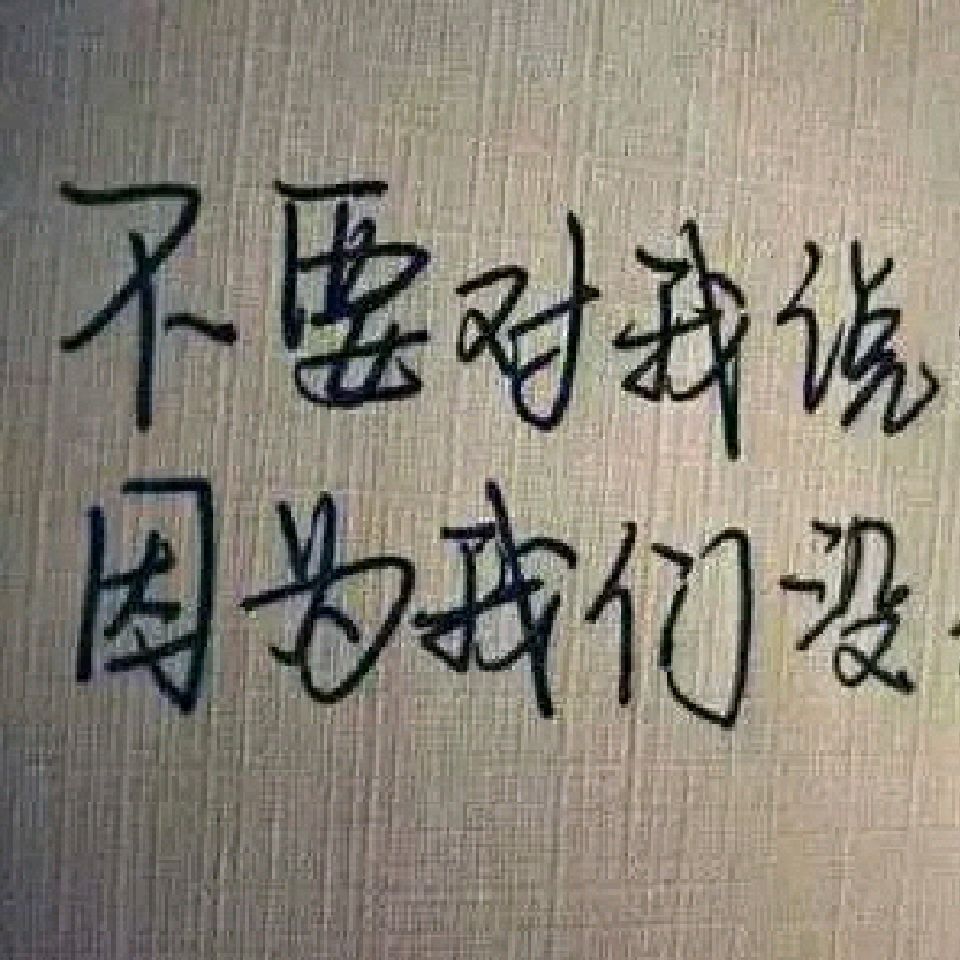 不要对我说
因为我们没